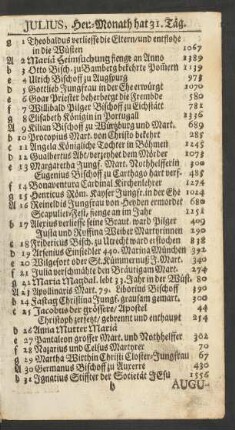 JULIUS, Heu-Monath hat 31. Täg.
g 1 Theobaldus verliesse die Eltern/und entflohe
in die Wüsten 1067
A 2 Mariä Heimsuchung fienge an Anno 1389
b 3 Otto Bisch. zu Bamberg bekehrte Pomern 1139
c 4 Ulrich Bischoff zu Augspurg 973
d 5 Gottlieb Jungfrau in der Ehe erwürgt 1070
e 6 Goar Priester beherbergt die Fremde 580
f 7 Willibald Pilger Bischoff zu Eichstätt 781
g 8 Elisabeth Königin in Portugall 1336
A 9 Kilian Bischoff zu Würtzburg und Mart. 689
b 10 Procopius Mart. von Christo bekehrt 285
c 11 Angela Königliche Tochter in Böhmen 1245
d 12 Gualbertus Abt/verzyhet dem Mörder 1073
e 13 Margaretha Jungf. Mart. Nothhelfferin 300
Eugenius Bischoff zu Carthago hart verf. 485
f 14 Bonaventura Cardinal Kirchenlehrer 1274
g 15 Henricus Röm. Kayser Jungfr. in der Ehe 1024
A 16 Reineldis Jungfrau von Heyden ermordet 680
Scapulier-Fest, fienge an im Jahr 1251
b 17 Alexius verliesse seine Braut, ward Pilger 409
Justa und Ruffina Weiber Martyrinnen 190
c 18 Fridericus Bisch. zu Utrecht ward erstochen 838
d 19 Arsenius Einsidler 440. Marina München
e 20 Wilgefort oder St. Kümmernuß J. Mart. 340
f 21 Julia verschmähte den Bräutigam Mart. 274
g 22 Maria Magdal. lebt 33. Jahr in der Wüst. 80
A 23 Apollinaris Mart. 79. Liborius Bischoff 390
b 24 Fasttag Christina Jungf. grausam gemart. 300
c 25 Jacobus der grössere/ Apostel 44
Christoph zersetzt/ gebrennt und enthaupt 254
d 26 Anna Mutter Mariä
e 27 Pantaleon grosser Mart. und Nothhelffer 302
f 28 Nazarius und Celsus Martyrer 70
g 29 Martha Wirthin Christi Closter-Jungfrau 67
A 30 Germanus Bischoff zu Auxerre 430
b 31 Ignatius Stiffter der Societät JEsu 1556
b AUGU-